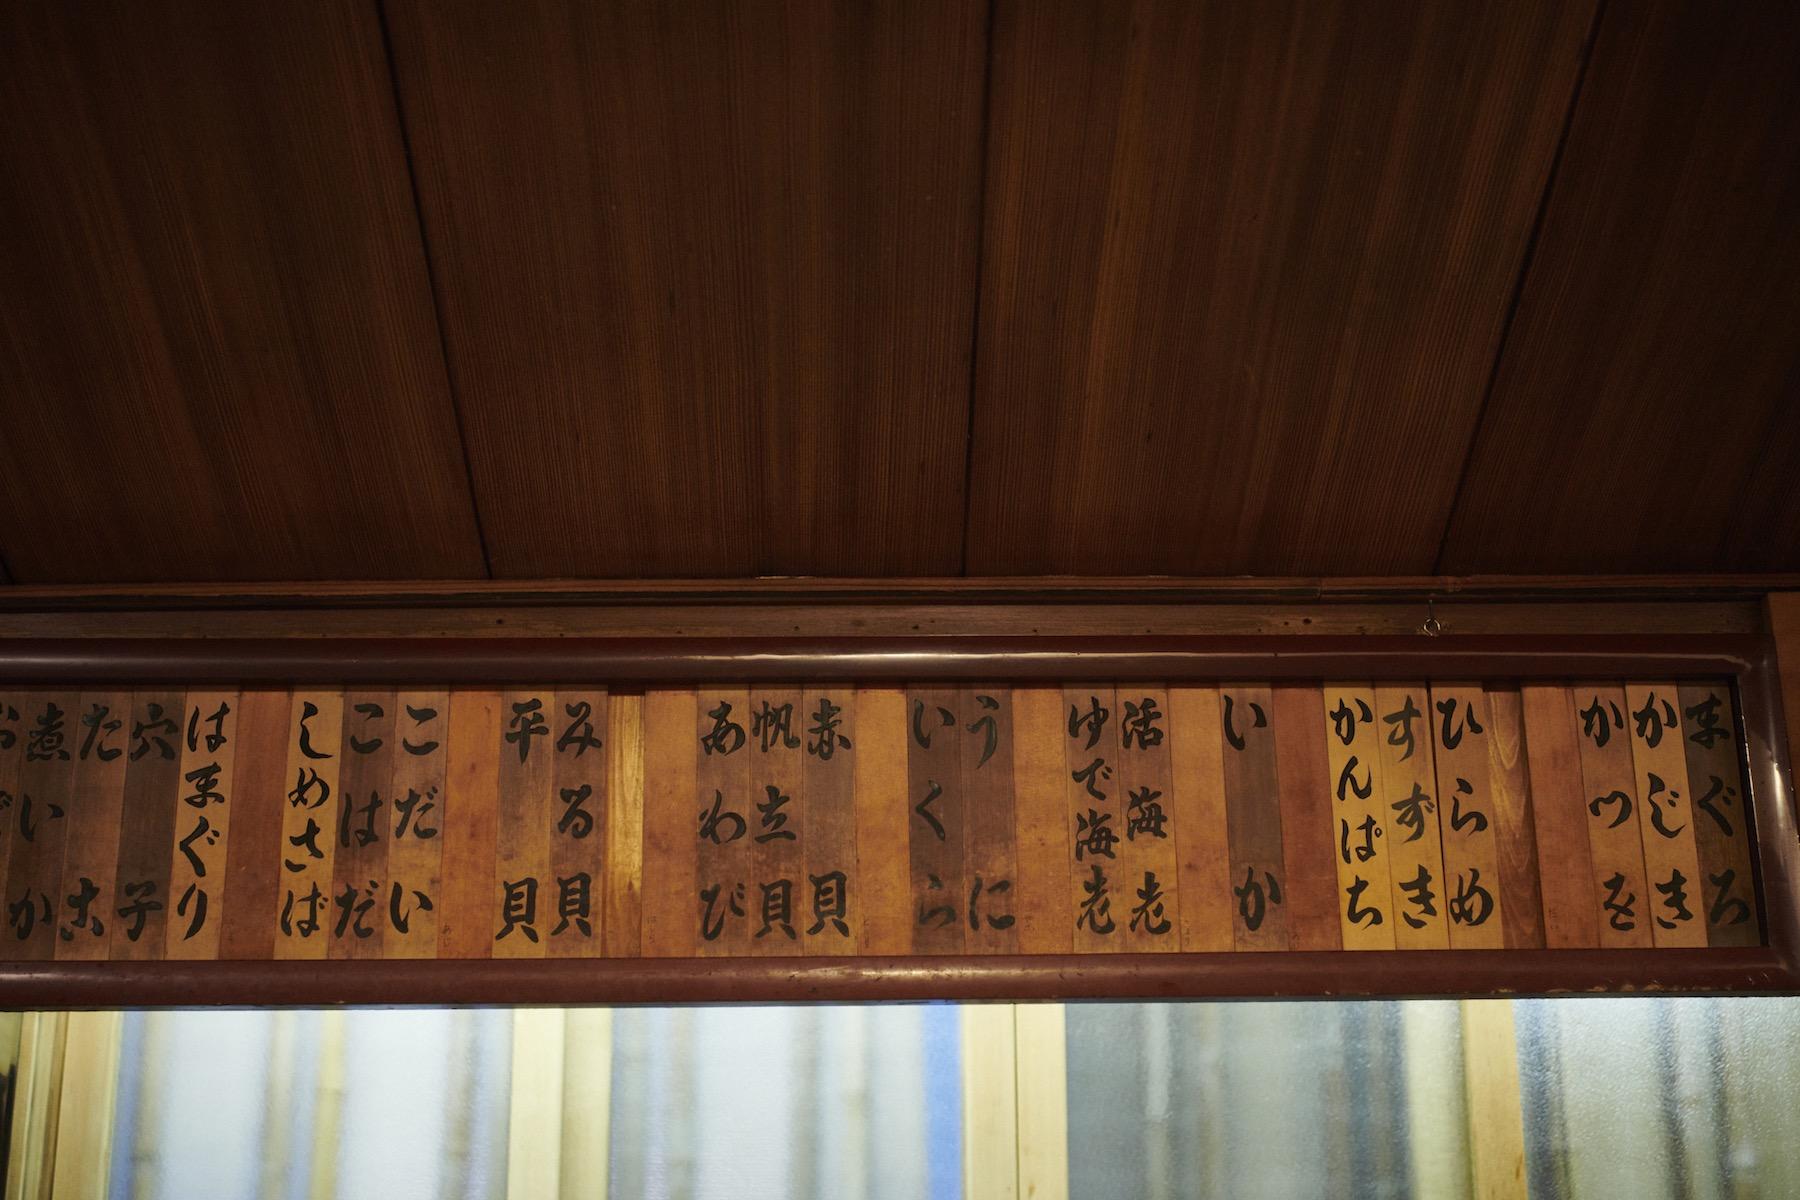 まぐろ
かじき
かつを
ひらめ
すずき
かんぱち
いか
活海老
ゆで海老
うに
いくら
赤貝
帆立貝
あわび
みる貝
平貝
こだい
こはだ
しめさば
はまぐり
穴子
たこ
煮いか